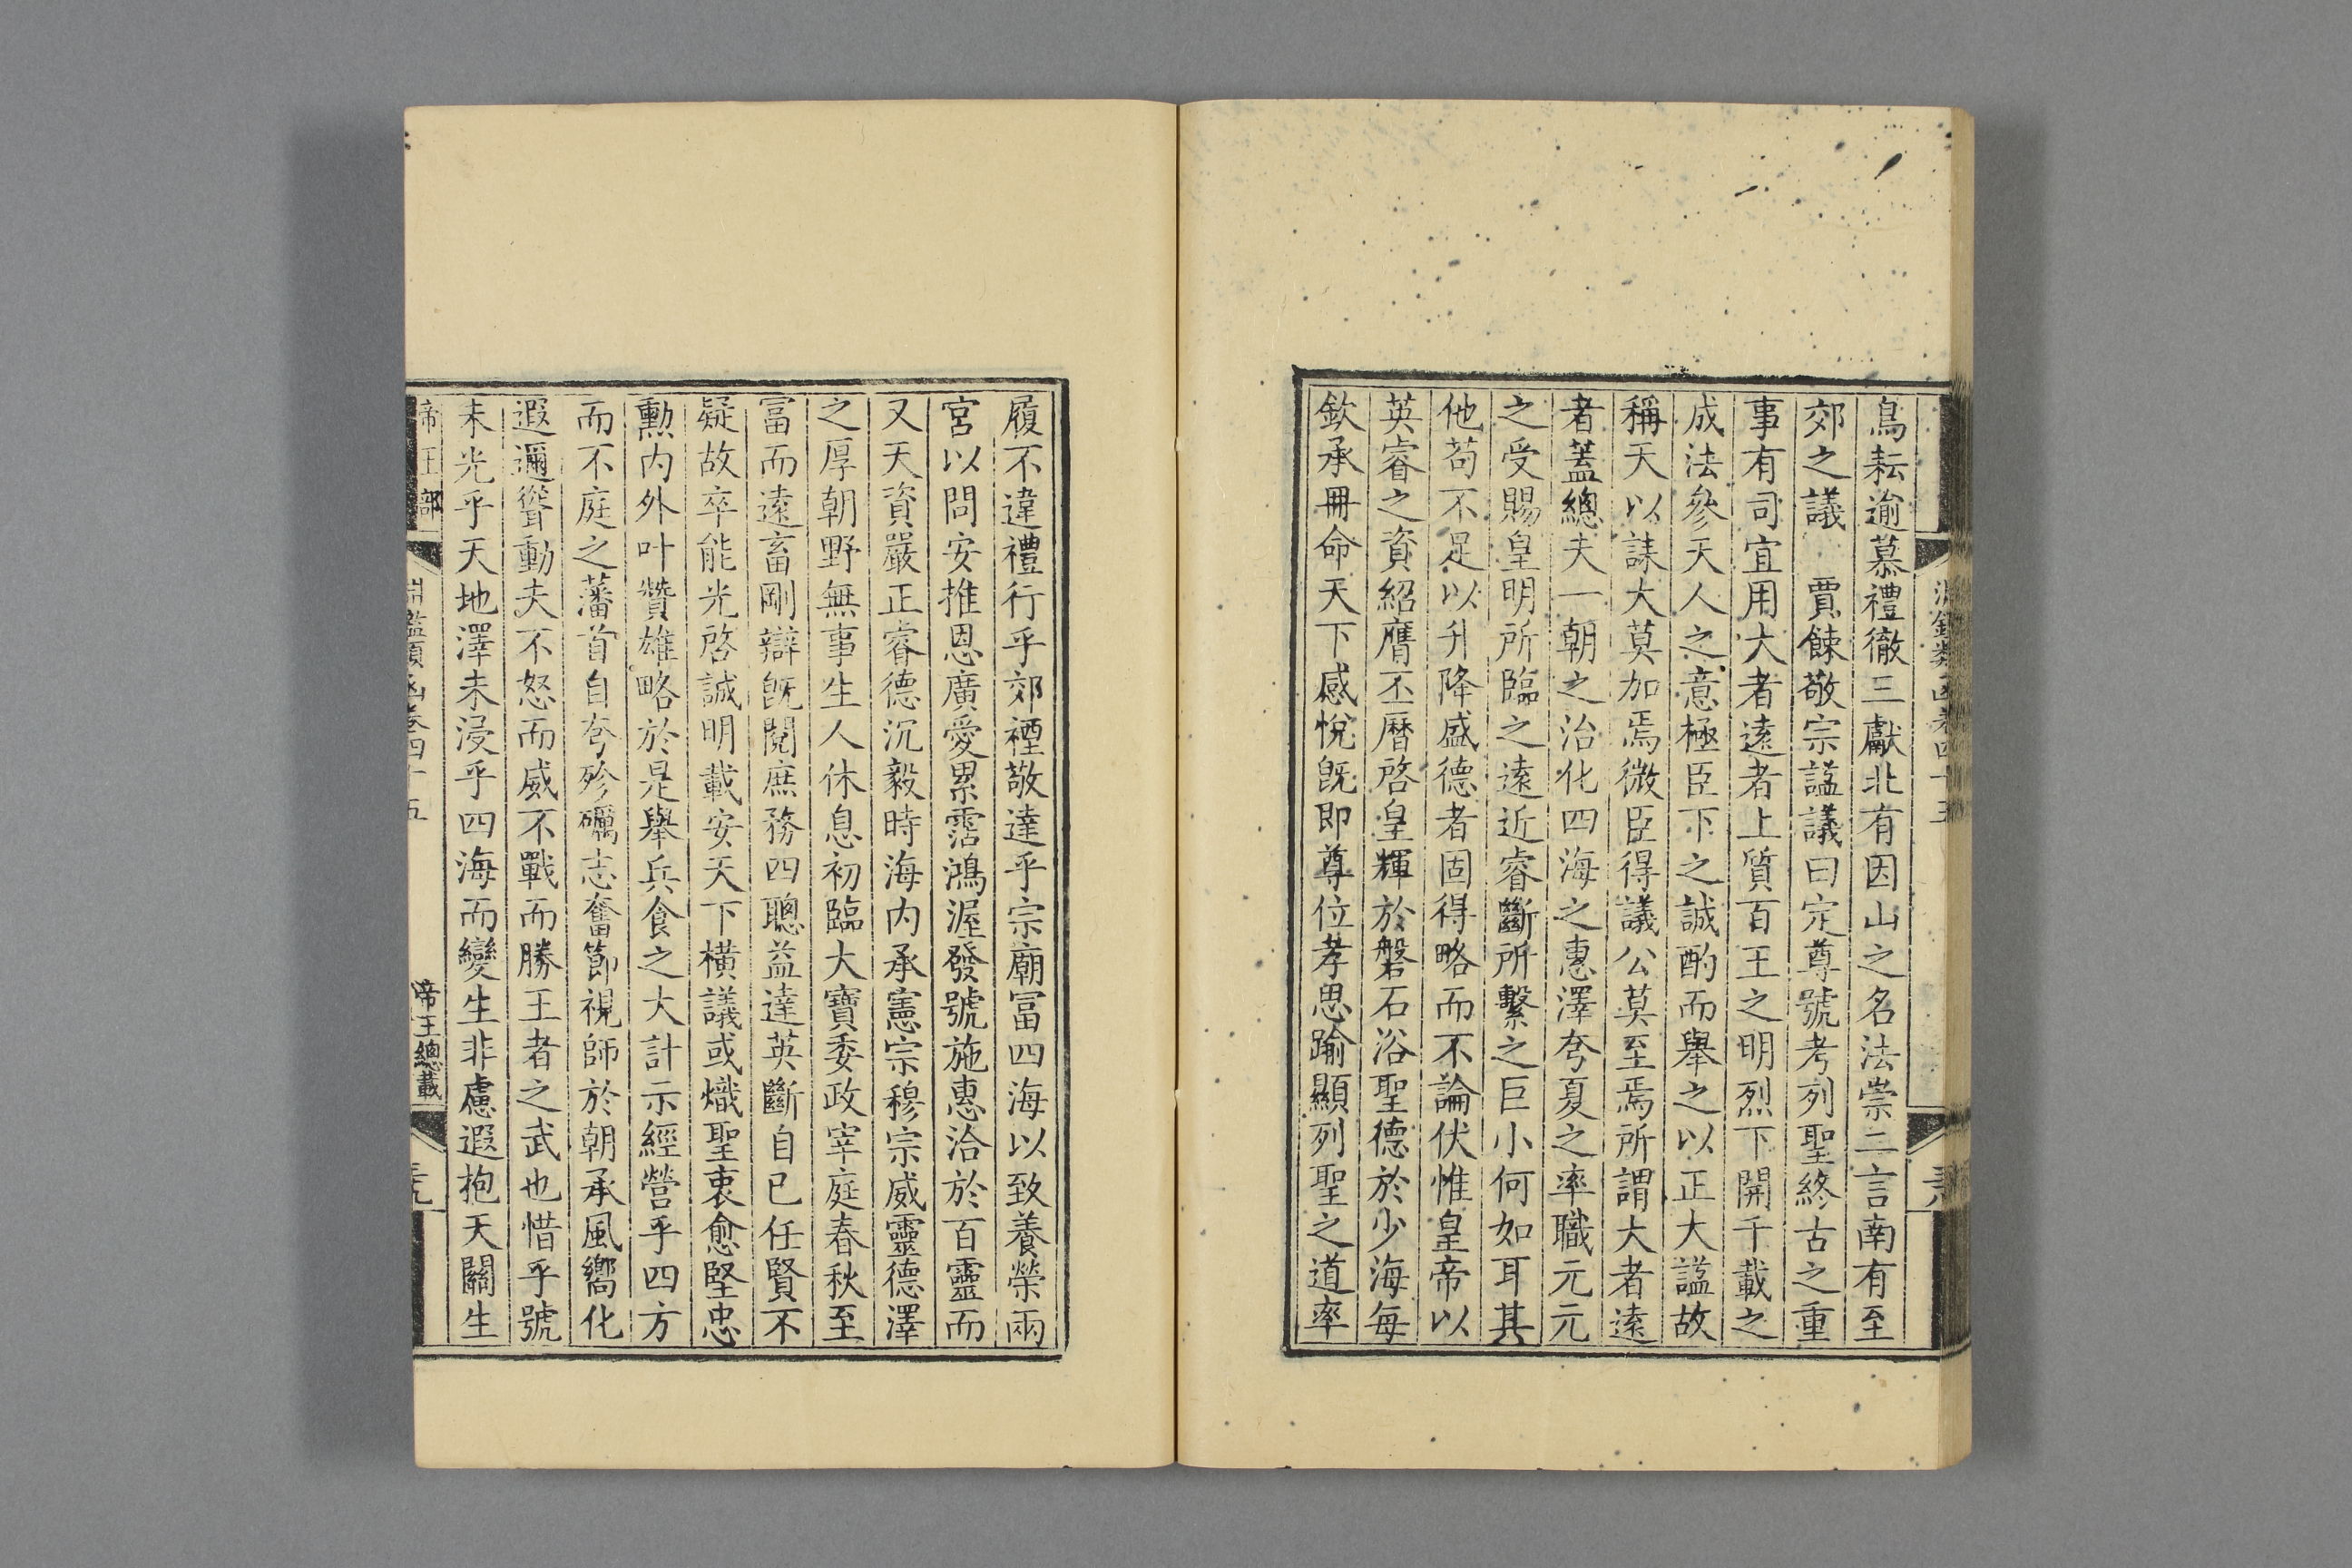 鳥耘逾慕禮徹三獻北有因山之名法崇二言南有至
郊之議　賈餗敬宗諡議曰定尊號考列聖終古之重
事有司宜用大者遠者上質百王之明烈下開千載之
成法參天人之意極臣下之誠酌而舉之以正大諡故
稱天以誄大莫加焉微臣得議公莫至焉所謂大者遠
者蓋總夫一朝之治化四海之惠澤夸夏之率職元元
之受賜皇明所臨之遠近睿斷所繫之巨小何如耳其
他苟不足以升降盛德者固得略而不論伏惟皇帝以
英睿之資紹膺丕曆啓皇輝於磐石浴聖德於少海每
欽承冊命天下感悅旣即尊位孝思踰顯列聖之道率
履不違禮行乎郊禋敬達乎宗廟冨四海以致養榮兩
宮以問安推恩廣愛累霑鴻渥發號施惠洽於百靈而
又天資嚴正睿德沉毅時海内承憲宗穆宗威靈德澤
之厚朝野無事生人休息初臨大寶委政宰庭春秋至
冨而遠畜剛辯旣閱庶務四聰益達英斷自已任賢不
疑故卒能光啓誠明載安天下橫議或熾聖衷愈堅忠
勳内外叶贊雄略於是舉兵食之大計示經營乎四方
而不庭之藩首自夸殄礪志奮節視師於朝承風嚮化
遐邇聳動夫不怒而威不戰而勝王者之武也惜乎號
未光乎天地澤未浸乎四海而變生非慮遐抱天關生
帝王部
淵鑑類函卷四十五
帝王總載